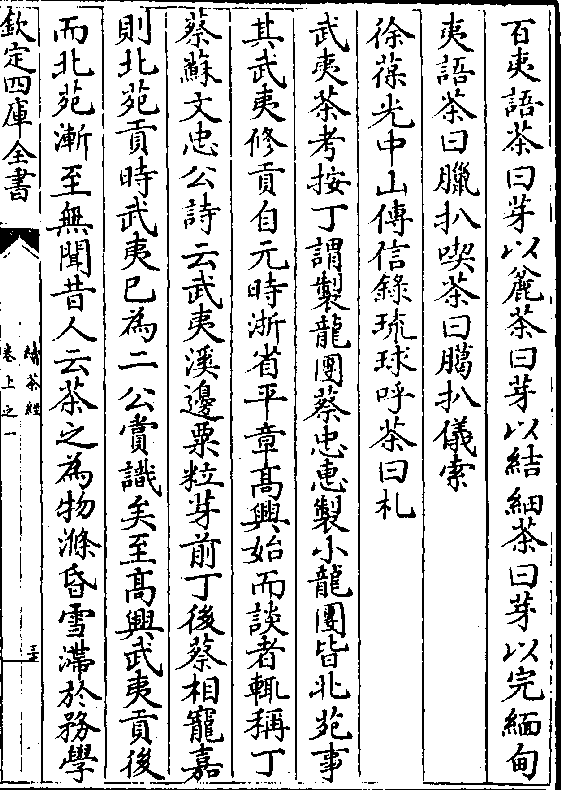 百夷語茶曰芽以麄茶曰芽以結細茶曰芽以完緬甸
夷語茶曰臘扒喫茶曰臈扒儀索
徐葆光中山傳信錄琉球呼茶曰札
武夷茶考按丁謂製龍團蔡忠惠製小龍團皆北苑事
其武夷修貢自元時浙省平章髙興始而談者輒稱丁
蔡蘇文忠公詩云武夷溪邊粟粒芽前丁後蔡相寵嘉
則北苑貢時武夷已為二公賞識矣至髙興武夷貢後
而北苑漸至無聞昔人云茶之為物滌昏雪滯於務學
欽定四庫全書
續茶經
卷上之一